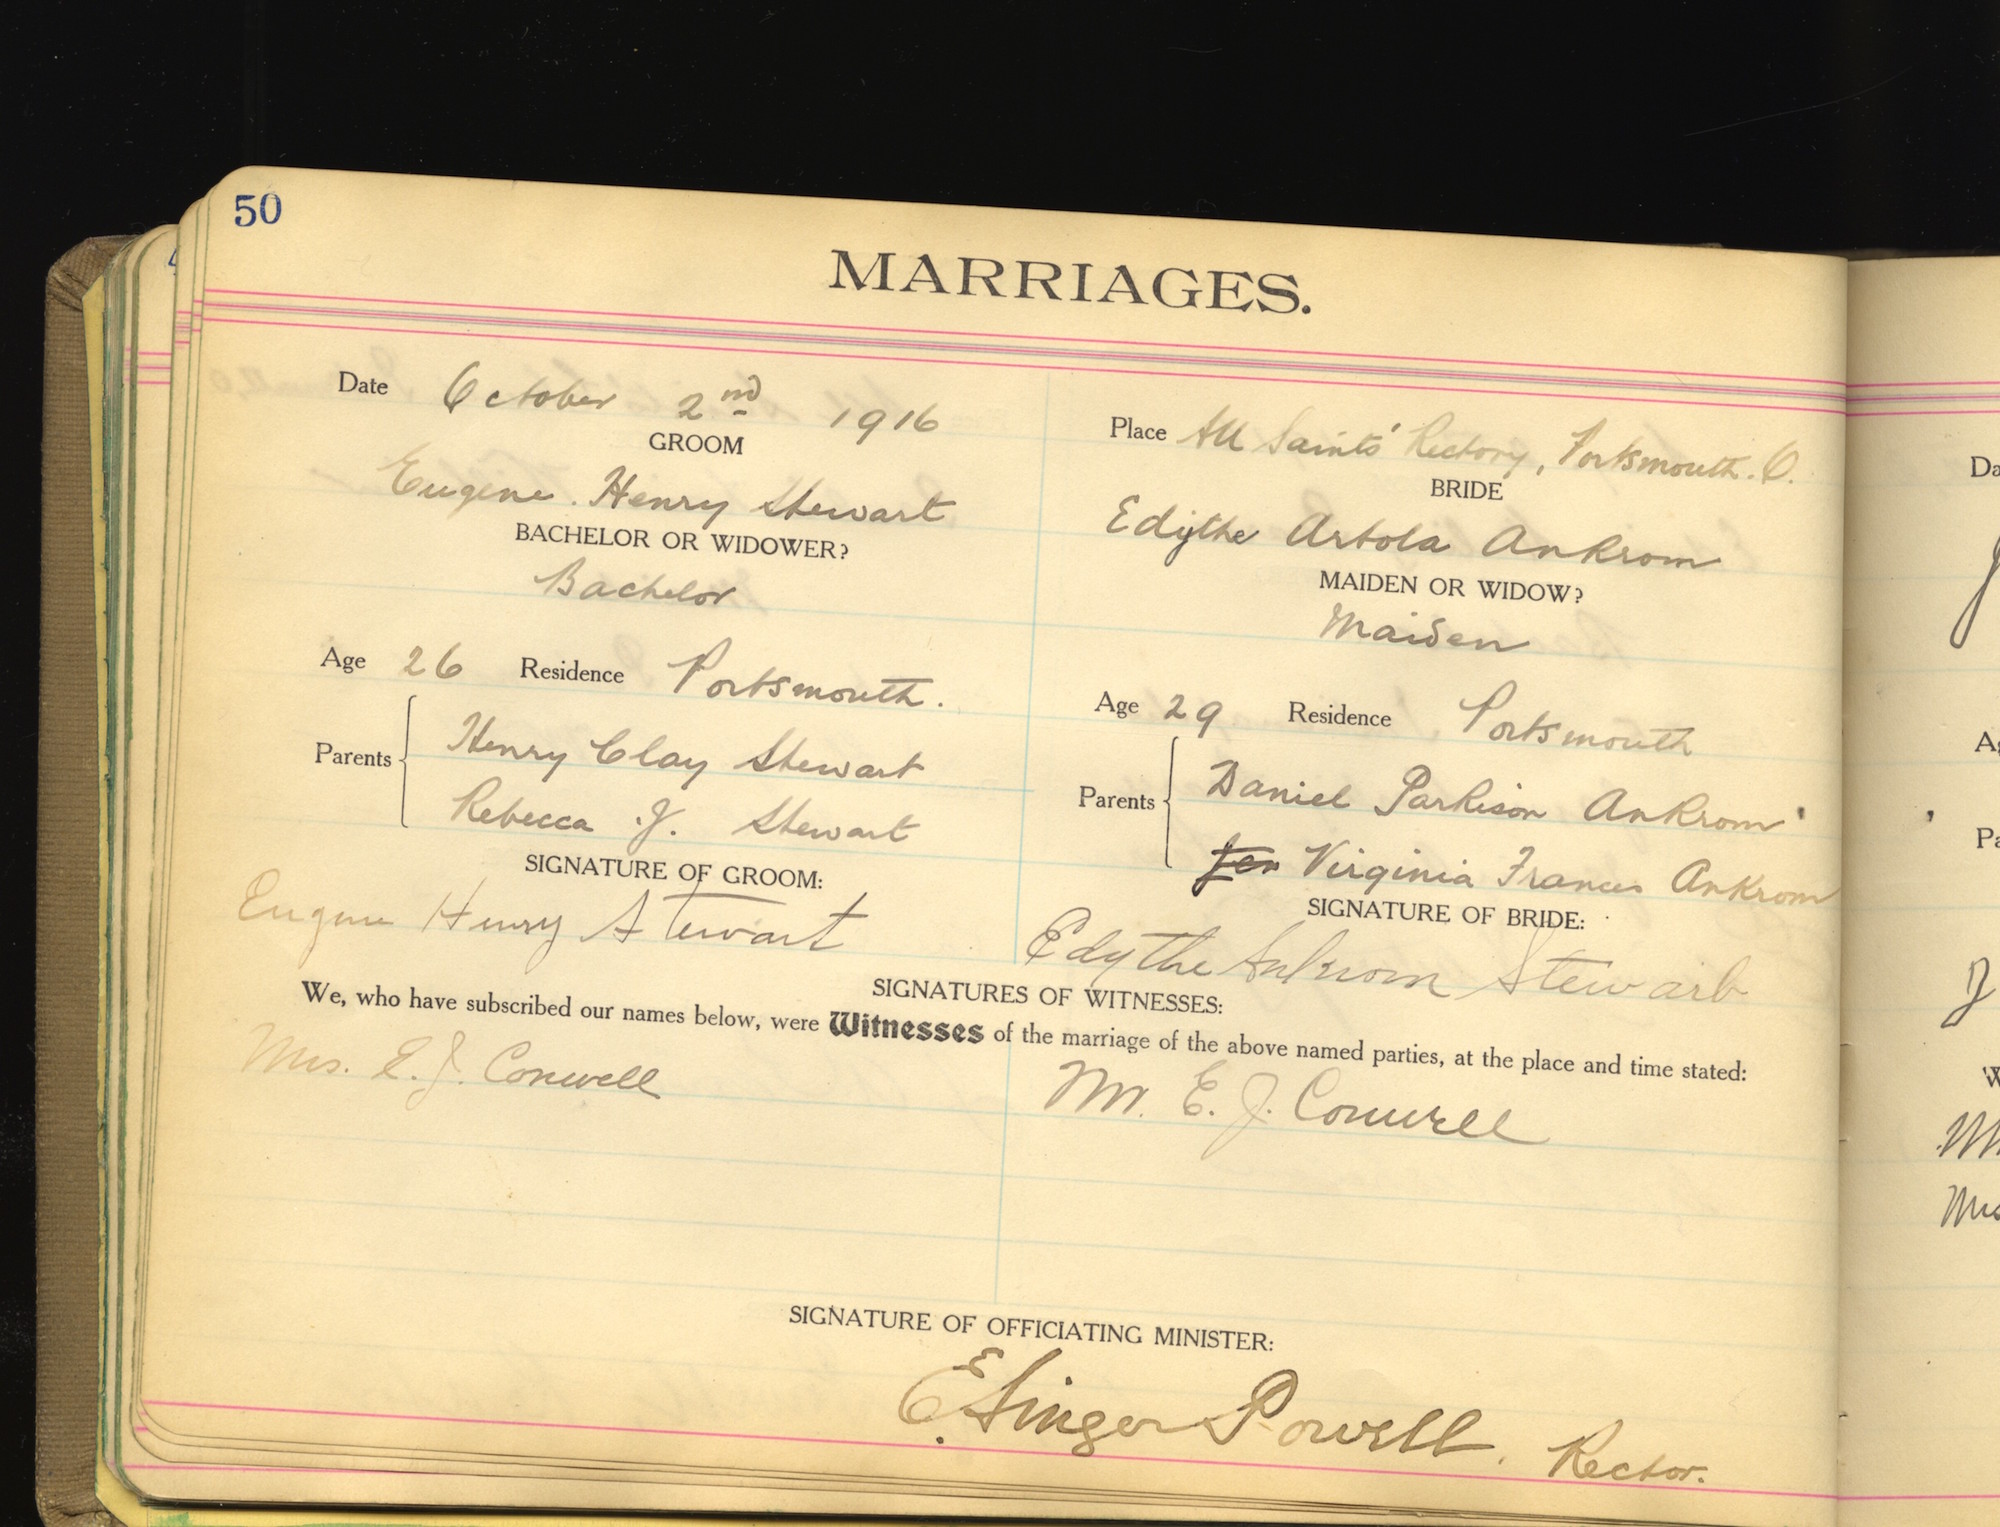 50
MARRIAGES.
Date October 2nd 1916
GROOM
Eugene Henry Stewart
BACHELOR OR WIDOWER?
Bachelor
Age 26 Residence Portsmouth.
Parents
Henry Clay Stewart
Rebecca J. Stewart
SIGNATURE OF GROOM:
Eugene Henry Stewart
Place All Saints' Rectory, Portsmouth. O.
BRIDE
Edythe Artola Ankrom
MAIDEN OR WIDOW?
Maiden
Age 29 Residence Portsmouth
Parents
Daniel Parkison Ankrom
Virginia Frances Ankrom
SIGNATURE OF BRIDE:
Edythe Ankrom Stewart
SIGNATURES OF WITNESSES:
We, who have subscribed our names below, were Witnesses of the marriage of the above named parties, at the place and time stated:
Mrs. E. J. Conwell
Mr. E. J. Conwell
SIGNATURE OF OFFICIATING MINISTER:
E. Ainger Powell, Rector.